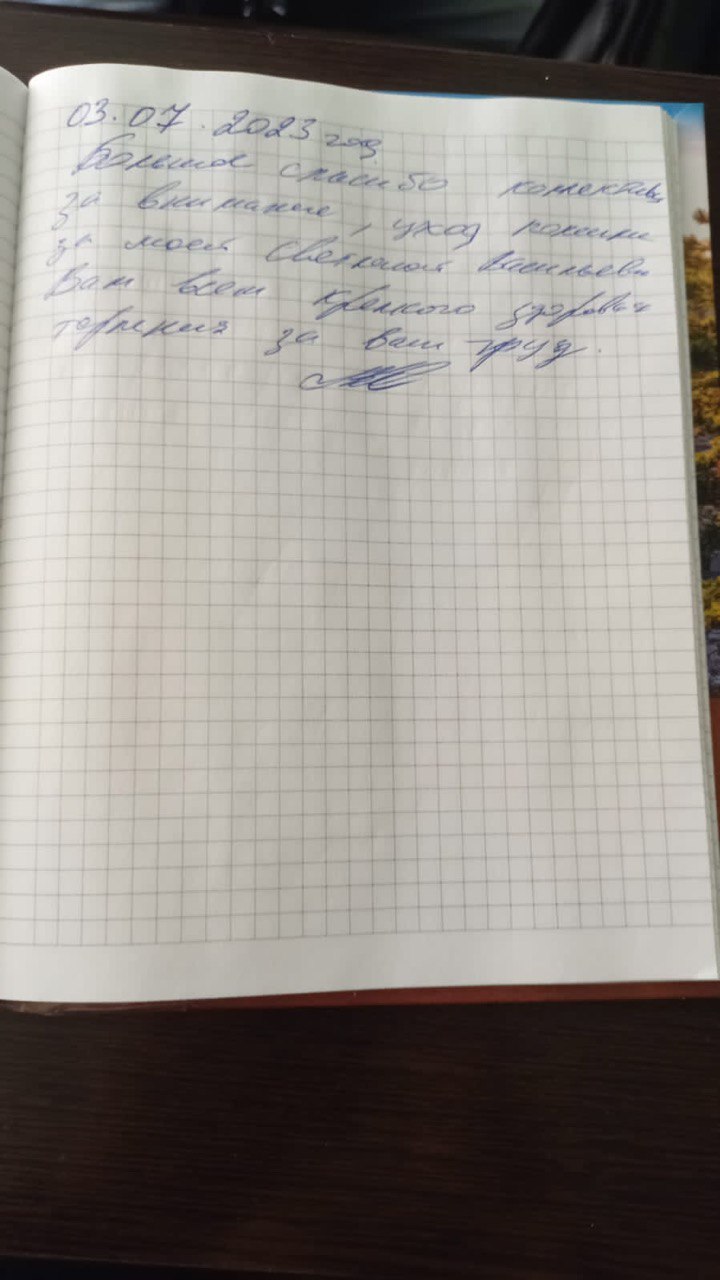 03.07.2023 год
Большое спасибо коллективу
за внимание, уход
за моей Светланой Васильевн
Вам всем крепкого здоровья
терпения за ваш труд.